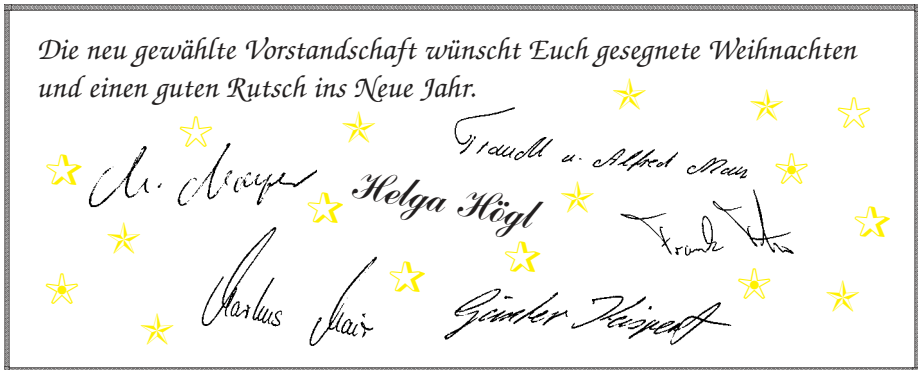 Die neu gewählte Vorstandschaft wünscht Euch gesegnete Weihnachten
und einen guten Rutsch ins Neue Jahr.
Traudl u. Alfred Maus
M. Mayer
Helga Högl
Frank
Markus Mair
Günter